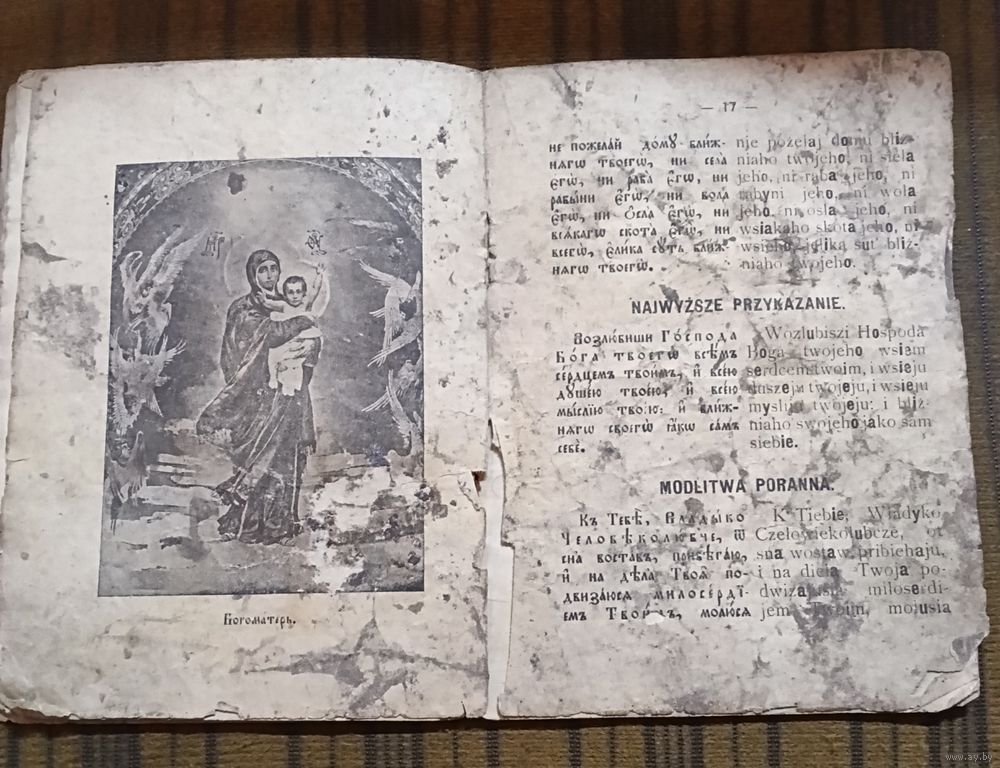 Богоматерь.
— 17 —
не пожелай дому ближ-
нягѡ твоегѡ, ни села
єгѡ, ни раба єгѡ, ни
рабыни єгѡ, ни вола
єгѡ, ни ѻсла єгѡ, ни
всякагѡ скота єгѡ, ни
всегѡ, єлика суть ближ-
нягѡ твоегѡ.
nje pożelaj domu bliż-
niaho twojeho, ni siela
jeho, ni raba jeho, ni
rabyni jeho, ni wola
jeho, ni osla jeho, ni
wsiakaho skota jeho, ni
wsieho, jelika sut' bliż-
niaho twojeho.
NAJWYŻSZE PRZYKAZANIE.
Возлюбиши Го́спода
Бога твоегѡ всѣмъ
се́рдцемъ твоимъ, и҆ все́ю
душе́ю твоею, и҆ все́ю
мыслїю твоею: и҆ ближ-
нягѡ своегѡ ꙗкѡ самъ
себѐ.
Wozlubiszi Hospoda
Boga twojeho wsiem
serdcem twoim, i wsieju
duszeju twojeju, i wsieju
mysliju twojeju: i bliż-
niaho swojeho jako sam
siebie.
MODLITWA PORANNA.
Къ Тебѣ, Владыко
Человѣколюбче, ѿ
сна воставъ, прибѣгаю,
и҆ на дѣла Твоѧ по-
двизаюсѧ милосердї-
емъ Твоимъ, молюсѧ
K Tiebie, Władyko
Czełowiekolubcze, ot
sna wostaw pribiehaju,
i na dieła Twoja po-
dwizajusia miłoserdi-
jem Twoim, molusia
www.ay.by